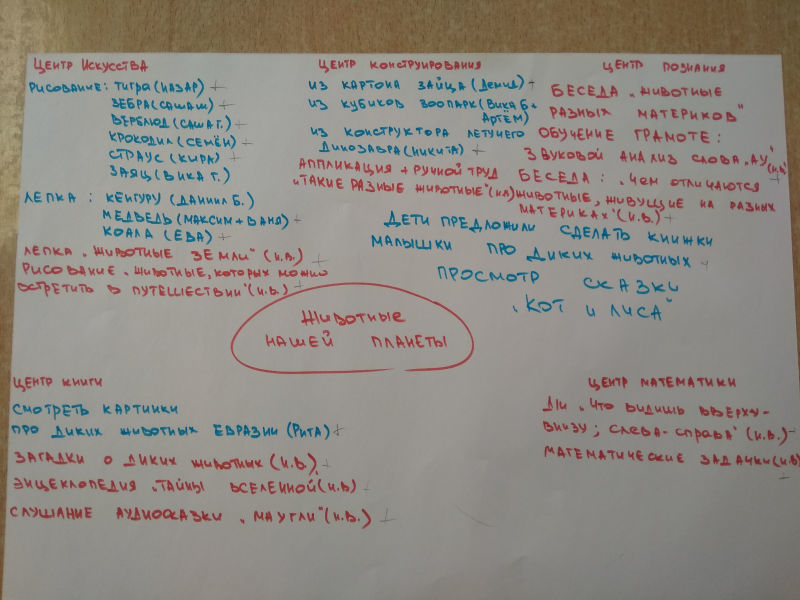 ЦЕНТР ИСКУССТВА
РИСОВАНИЕ: ТИГРА (НАЗАР) +
ЗЕБРА (САША Ш) +
ВЕРБЛЮД (САША Г.) +
КРОКОДИЛ (СЕМЁН) +
СТРАУС (КИРА) +
ЗАЯЦ (ВИКА Г.) +
ЛЕПКА: КЕНГУРУ (ДАНИИЛ Б.)
МЕДВЕДЬ (МАКСИМ + ВАНЯ) +
КОАЛА (ЕВА) +
ЛЕПКА „ЖИВОТНЫЕ ЗЕМЛИ" (И.В.) +
РИСОВАНИЕ „ЖИВОТНЫЕ, КОТОРЫХ МОЖНО
ВСТРЕТИТЬ В ПУТЕШЕСТВИИ" (И.В.) +
ЦЕНТР КОНСТРУИРОВАНИЯ
ИЗ КАРТОНА ЗАЙЦА (ДЕМИД) +
ИЗ КУБИКОВ ЗООПАРК (ВИКА Б +
АРТЁМ)
ИЗ КОНСТРУКТОРА ЛЕТУЧЕГО
ДИНОЗАВРА (НИКИТА) +
АППЛИКАЦИЯ + РУЧНОЙ ТРУД
„ТАКИЕ РАЗНЫЕ ЖИВОТНЫЕ"
ЦЕНТР ПОЗНАНИЯ
БЕСЕДА „ЖИВОТНЫЕ
РАЗНЫХ МАТЕРИКОВ"
ОБУЧЕНИЕ ГРАМОТЕ:
ЗВУКОВОЙ АНАЛИЗ СЛОВА „АУ" (И.В.) +
БЕСЕДА: „ЧЕМ ОТЛИЧАЮТСЯ
ЖИВОТНЫЕ, ЖИВУЩИЕ НА РАЗНЫХ
МАТЕРИКАХ" (И.В.) +
ДЕТИ ПРЕДЛОЖИЛИ СДЕЛАТЬ КНИЖКИ
МАЛЫШКИ ПРО ДИКИХ ЖИВОТНЫХ
ПРОСМОТР СКАЗКИ
„КОТ И ЛИСА"
ЖИВОТНЫЕ
НАШЕЙ ПЛАНЕТЫ
ЦЕНТР КНИГИ
СМОТРЕТЬ КАРТИНКИ
ПРО ДИКИХ ЖИВОТНЫХ ЕВРАЗИИ (РИТА) +
ЗАГАДКИ О ДИКИХ ЖИВОТНЫХ (И.В.) +
ЭНЦЕКЛОПЕДИЯ „ТАЙНЫ ВСЕЛЕННОЙ (И.В) +
СЛУШАНИЕ АУДИОСКАЗКИ „МАУГЛИ" (И.В.) +
ЦЕНТР МАТЕМАТИКИ
Д/И „ЧТО ВИДИШЬ ВВЕРХУ-
ВНИЗУ; СЛЕВА-СПРАВА" (И.В.) +
МАТЕМАТИЧЕСКИЕ ЗАДАЧКИ (И.В) +